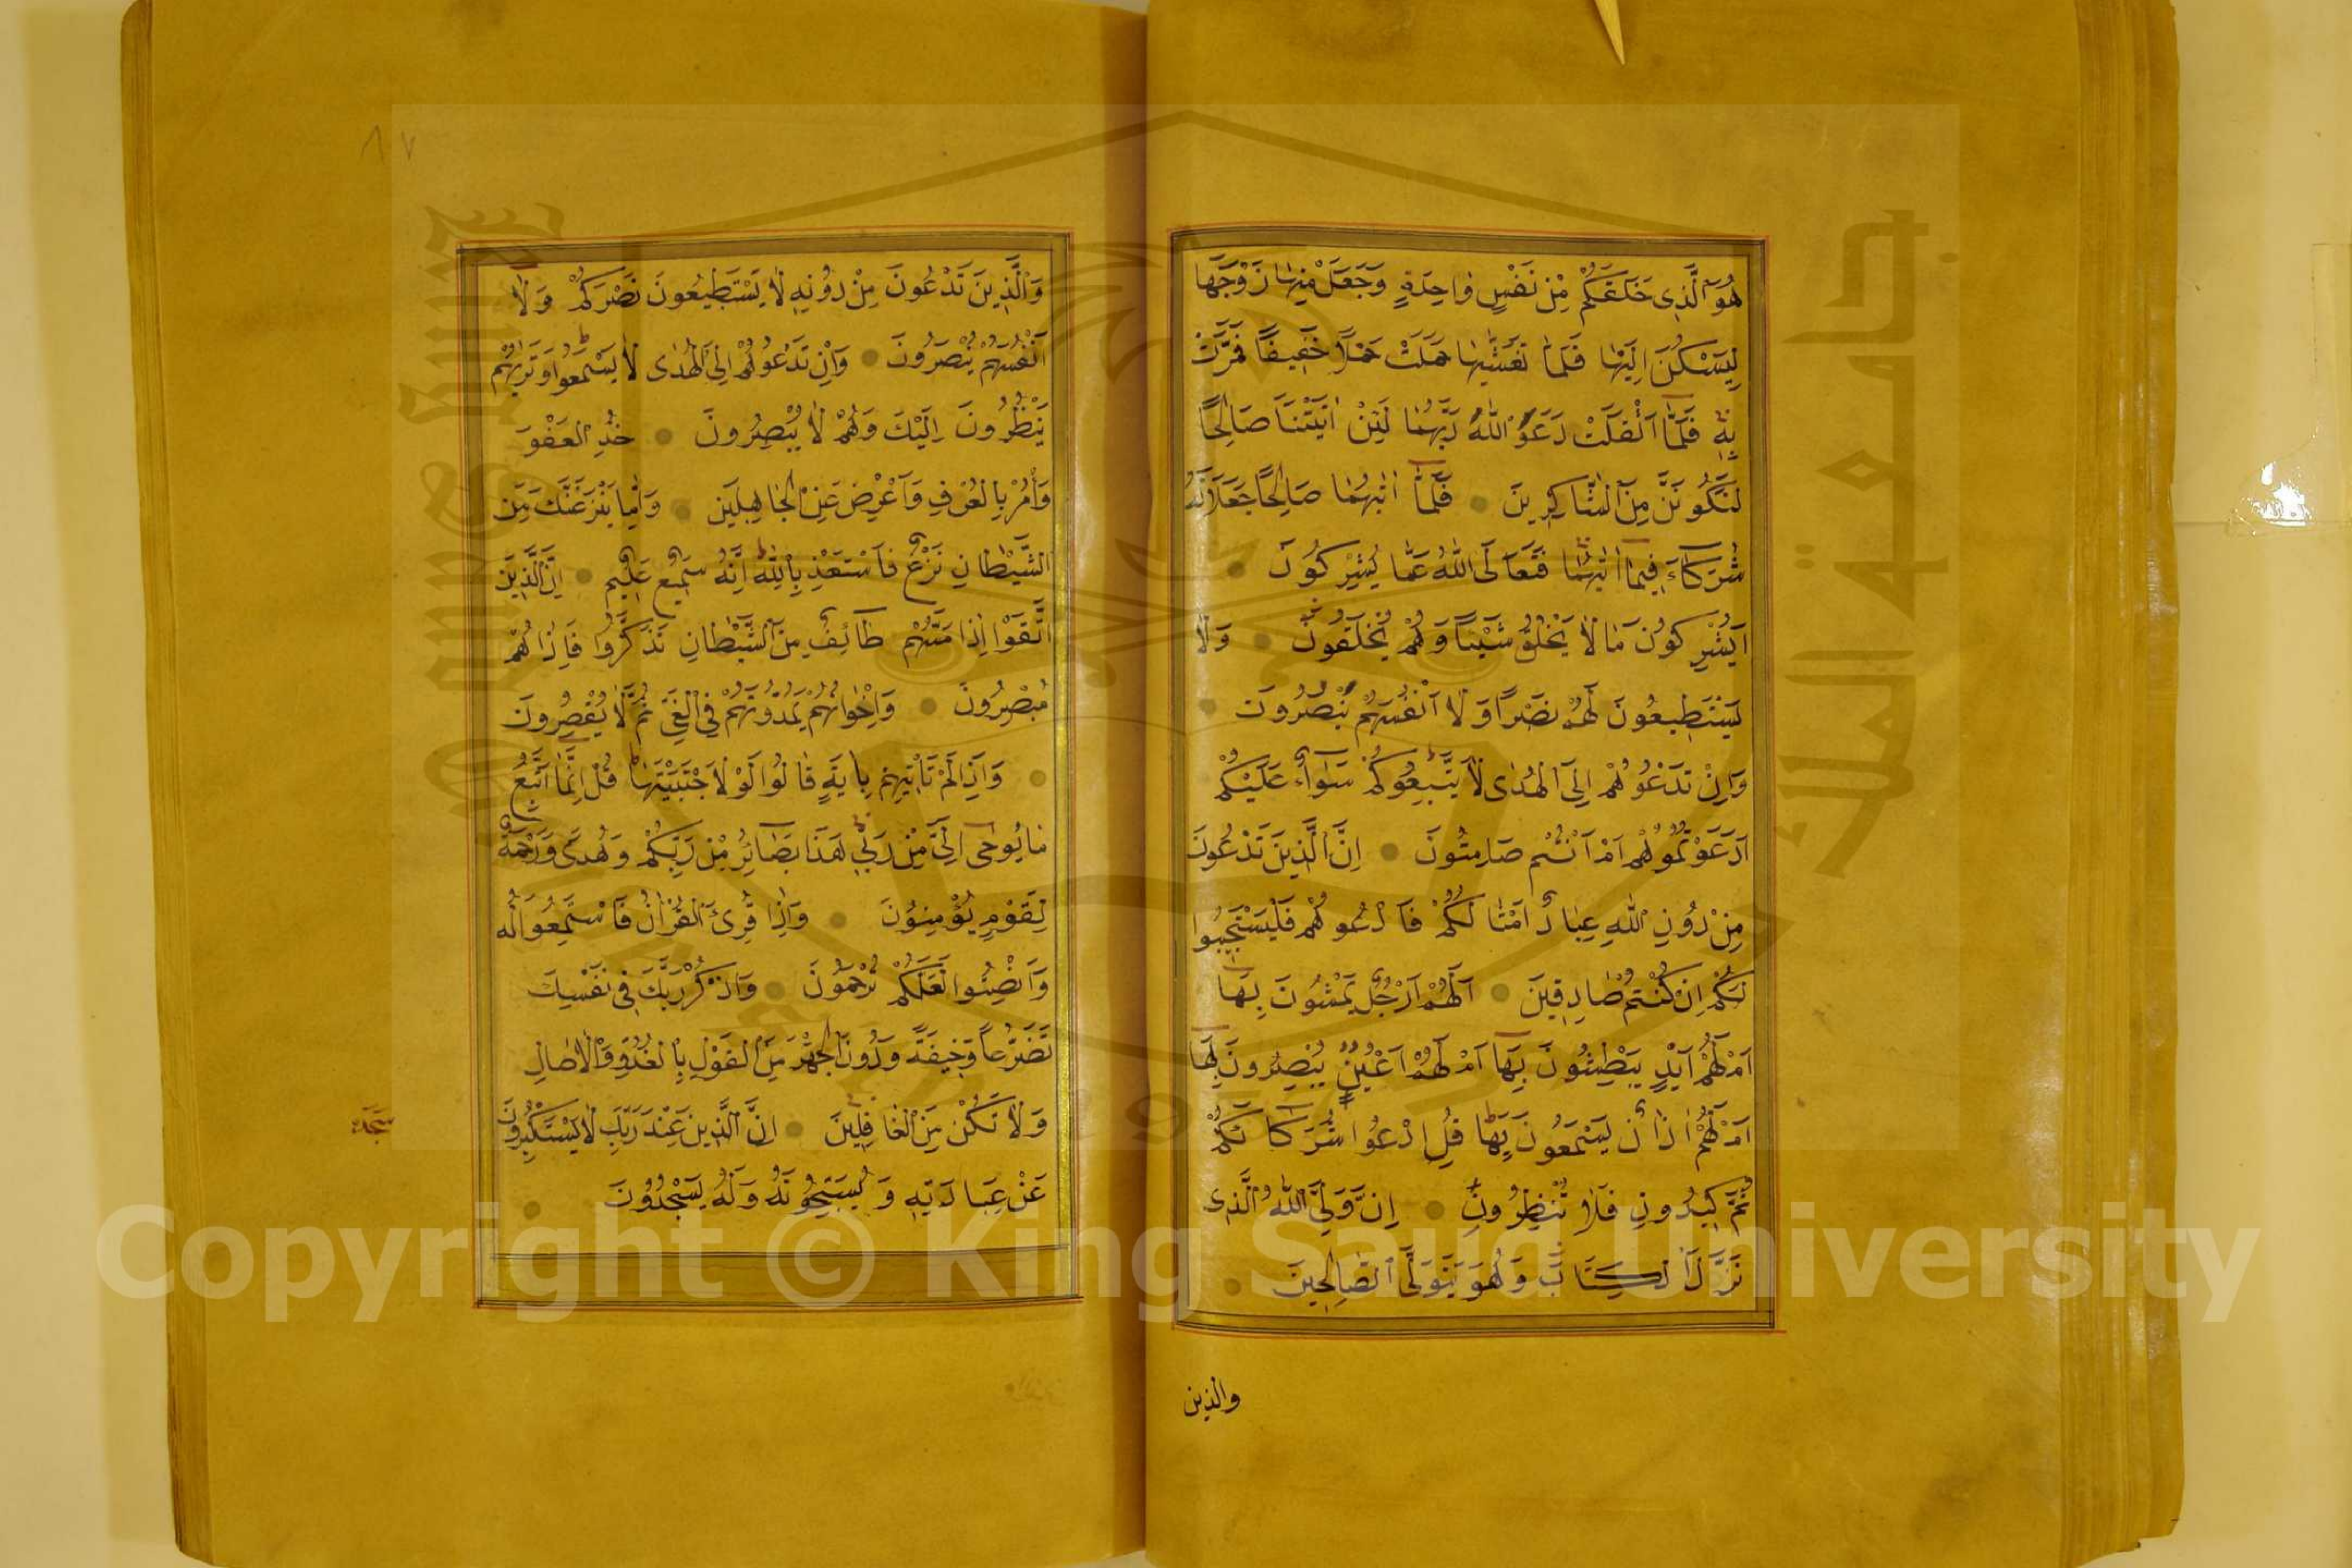 هُوَ الَّذِى خَلَقَكُمْ مِنْ نَفْسٍ وَاحِدَةٍ وَجَعَلَ مِنْهَا زَوْجَهَا
لِيَسْكُنَ اِلَيْهَا فَلَمَّا تَغَشّٰيهَا حَمَلَتْ حَمْلًا خَفِيفًا فَمَرَّتْ
بِهِ فَلَمَّا اَثْقَلَتْ دَعَوَا اللّٰهَ رَبَّهُمَا لَئِنْ اٰتَيْتَنَا صَالِحًا
لَنَكُونَنَّ مِنَ الشَّاكِرِينَ فَلَمَّا اٰتٰيهُمَا صَالِحًا جَعَلَا لَهُ
شُرَكَاءَ فِيمَا اٰتٰيهُمَا فَتَعَالَى اللّٰهُ عَمَّا يُشْرِكُونَ
اَيُشْرِكُونَ مَا لَا يَخْلُقُ شَيْئًا وَهُمْ يُخْلَقُونَ وَلَا
يَسْتَطِيعُونَ لَهُمْ نَصْرًا وَلَا اَنْفُسَهُمْ يَنْصُرُونَ
وَاِنْ تَدْعُوهُمْ اِلَى الْهُدٰى لَا يَتَّبِعُوكُمْ سَوَاءٌ عَلَيْكُمْ
اَدَعَوْتُمُوهُمْ اَمْ اَنْتُمْ صَامِتُونَ اِنَّ الَّذِينَ تَدْعُونَ
مِنْ دُونِ اللّٰهِ عِبَادٌ اَمْثَالُكُمْ فَادْعُوهُمْ فَلْيَسْتَجِيبُوا
لَكُمْ اِنْ كُنْتُمْ صَادِقِينَ اَلَهُمْ اَرْجُلٌ يَمْشُونَ بِهَا
اَمْ لَهُمْ اَيْدٍ يَبْطِشُونَ بِهَا اَمْ لَهُمْ اَعْيُنٌ يُبْصِرُونَ بِهَا
اَمْ لَهُمْ اٰذَانٌ يَسْمَعُونَ بِهَا قُلِ ادْعُوا شُرَكَاءَكُمْ
ثُمَّ كِيدُونِ فَلَا تُنْظِرُونِ اِنَّ وَلِيِّىَ اللّٰهُ الَّذِى
نَزَّلَ الْكِتَابَ وَهُوَ يَتَوَلَّى الصَّالِحِينَ
والذين
٨٧
وَالَّذِينَ تَدْعُونَ مِنْ دُونِهِ لَا يَسْتَطِيعُونَ نَصْرَكُمْ وَلَا
اَنْفُسَهُمْ يَنْصُرُونَ وَاِنْ تَدْعُوهُمْ اِلَى الْهُدٰى لَا يَسْمَعُوا وَتَرٰيهُمْ
يَنْظُرُونَ اِلَيْكَ وَهُمْ لَا يُبْصِرُونَ خُذِ الْعَفْوَ
وَأْمُرْ بِالْعُرْفِ وَاَعْرِضْ عَنِ الْجَاهِلِينَ وَاِمَّا يَنْزَغَنَّكَ مِنَ
الشَّيْطَانِ نَزْغٌ فَاسْتَعِذْ بِاللّٰهِ اِنَّهُ سَمِيعٌ عَلِيمٌ اِنَّ الَّذِينَ
اتَّقَوْا اِذَا مَسَّهُمْ طَائِفٌ مِنَ الشَّيْطَانِ تَذَكَّرُوا فَاِذَا هُمْ
مُبْصِرُونَ وَاِخْوَانُهُمْ يَمُدُّونَهُمْ فِى الْغَىِّ ثُمَّ لَا يُقْصِرُونَ
وَاِذَا لَمْ تَأْتِهِمْ بِاٰيَةٍ قَالُوا لَوْلَا اجْتَبَيْتَهَا قُلْ اِنَّمَا اَتَّبِعُ
مَا يُوحٰى اِلَىَّ مِنْ رَبِّى هٰذَا بَصَائِرُ مِنْ رَبِّكُمْ وَهُدًى وَرَحْمَةٌ
لِقَوْمٍ يُؤْمِنُونَ وَاِذَا قُرِئَ الْقُرْاٰنُ فَاسْتَمِعُوا لَهُ
وَاَنْصِتُوا لَعَلَّكُمْ تُرْحَمُونَ وَاذْكُرْ رَبَّكَ فِى نَفْسِكَ
تَضَرُّعًا وَخِيفَةً وَدُونَ الْجَهْرِ مِنَ الْقَوْلِ بِالْغُدُوِّ وَالْاٰصَالِ
وَلَا تَكُنْ مِنَ الْغَافِلِينَ اِنَّ الَّذِينَ عِنْدَ رَبِّكَ لَا يَسْتَكْبِرُونَ
سجده
عَنْ عِبَادَتِهِ وَيُسَبِّحُونَهُ وَلَهُ يَسْجُدُونَ
Copyright © King Saud University
جامعة الملك سعود
King Saud University
19